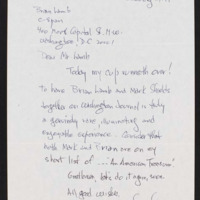 Brian Lamb
C-Span
400 North Capitol St. N.W.
Washington, D.C. 20001
Dear Mr. Lamb
Today my cup runneth over!
To have Brian Lamb and Mark Shields
together on Washington Journal is truly
a genuinely rare, illuminating and
enjoyable experience. Consider that
both Mark and Brian are on my
short list of ... "An American Treasure"
Good show, let's do it again, soon.
All good wishes,